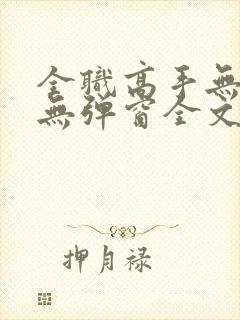 全職高手無
無彈窗全文
押月禄